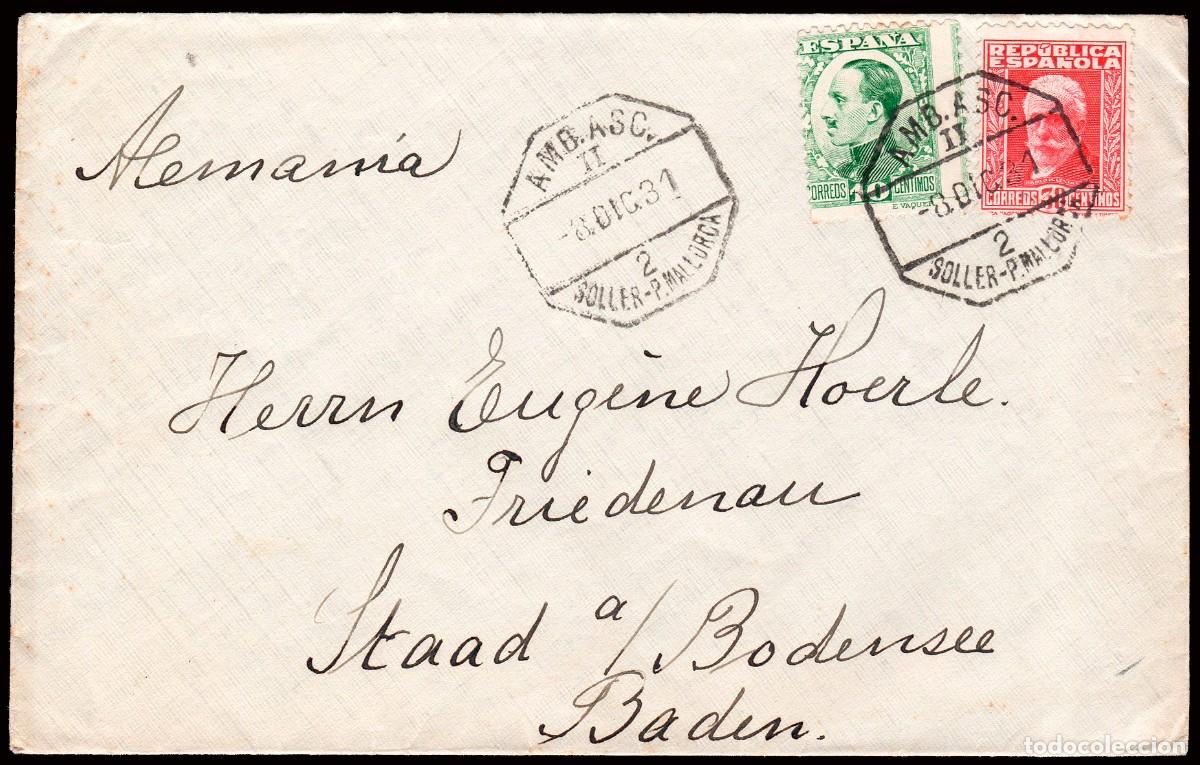 Alemania
ESPAÑA
CORREOS 10 CENTIMOS
REPÚBLICA
ESPAÑOLA
CORREOS 30 CENTIMOS
AMB. ASC.
II
-8.DIC.31
2
SOLLER-P.MALLORCA
AMB. ASC.
II
-8.DIC.31
2
SOLLER-P.MALLORCA
Herrn Eugène Hoerle.
Friedenau
Staad a/ Bodensee
Baden.
todocoleccion